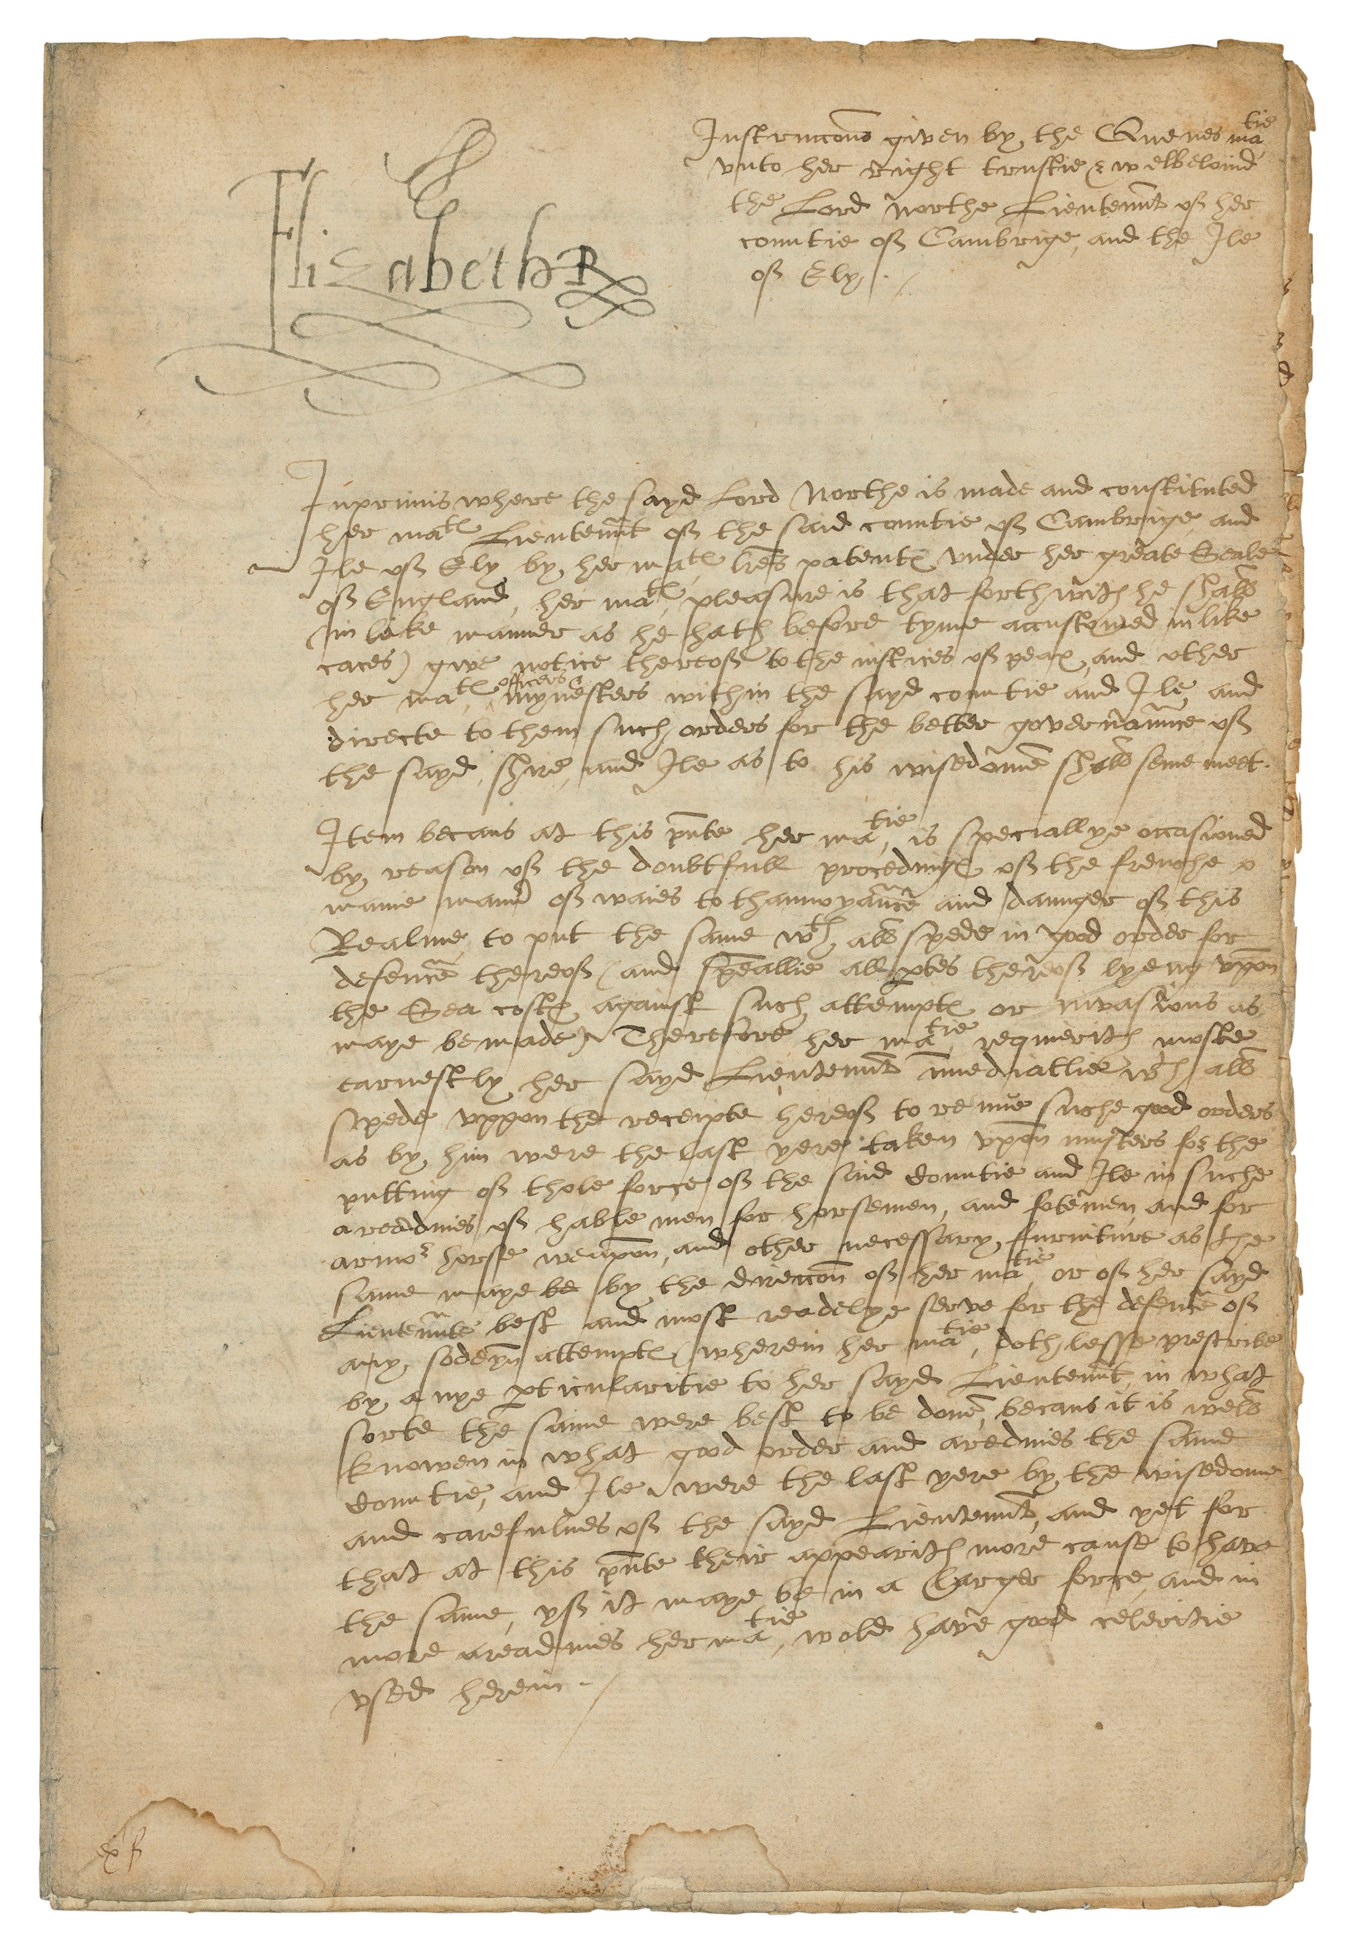 Elizabeth R
Instruccons given by the Quenes matie
vnto her right trustie & welbelovid
the Lord Northe Lieutennt of her
countie of Cambrige, and the Ile
of Ely ./
Inprimis where the sayd Lord Northe is made and constituted
her mats Lieutennt of the said countie of Cambrige and
Ile of Ely by her mats lres patents vnder her greate Seale
of England, her mats pleasure is that forthwith he shall
(in like manner as he hath before tyme accustomed in like
caces) give notice thereof to the iustices of peax and other
her mats officers & mynesters within the sayd countie and Ile and
directe to them such orders for the better governaunce of
the sayd shire and Ile as to his wisedome shall seme meet.
Item becaus at this pnte her matie is speciallye occasioned
by reason of the doubtfull procedings of the frenche
manie maner of waies to thannoyaunce and daunger of this
Realme to put the same wth all spede in good order for
defence thereof (and speallie all ptes thereof lyeng vpon
the Sea costs against such attempts or invasions as
maye be made) Therefore her matie requerith moste
earnestly her sayd Lieutennt imediatlie wth all
spede vppon the receipte hereof to renue suche good orders
as by him were the last yere taken vpon musters for the
putting of thole force of the said Countie and Ile in suche
areddines of hable men for horsemen, and fotemen and for
armor horse weapon, and other necessary furniture as the
same maye be by the direccon of her matie or of her sayd
Lieutennte best and most readelye serve for the defence of
any sodeyn attempts wherein her matie doth lesse prescribe
by anye pticularitie to her sayd Lieutennt in what
sorte the same were best to be done, becaus it is well
knowen in what good order and aredines the same
Countie, and Ile were the last yere by the wisedome
and carefulnes of the sayd Lieutennt, and yet for
that at this pnte their appearith more cause to have
the same, yf it maye be in a Larger force and in
more areadines her matie wold have good celeritie
vsed herein ./